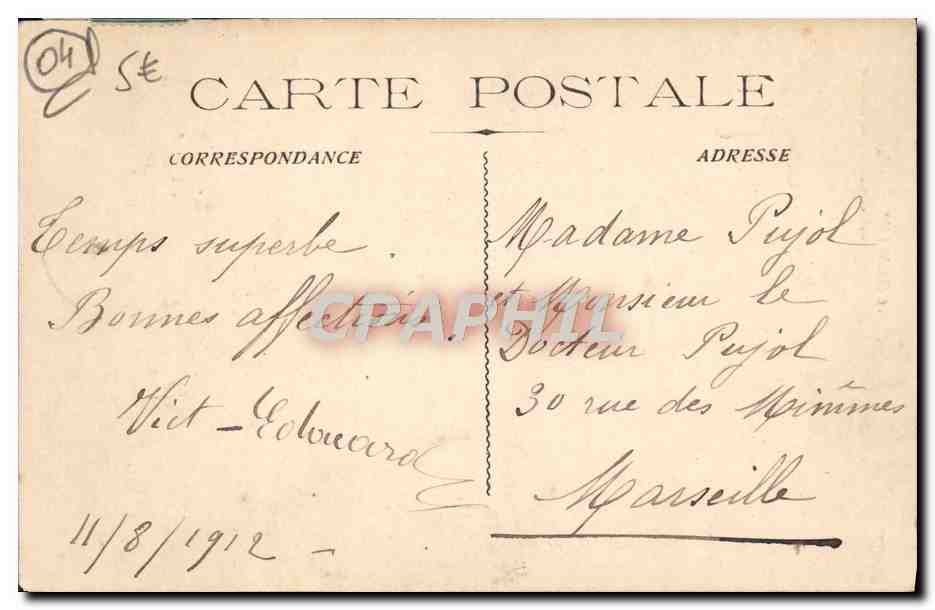 04
5€
CARTE POSTALE
CORRESPONDANCE
ADRESSE
Temps superbe.
Bonnes affections.
Vict-Edouard
11/8/1912 -
Madame Pujol
et Monsieur le
Docteur Pujol
30 rue des Minimes
Marseille
CPAPHIL